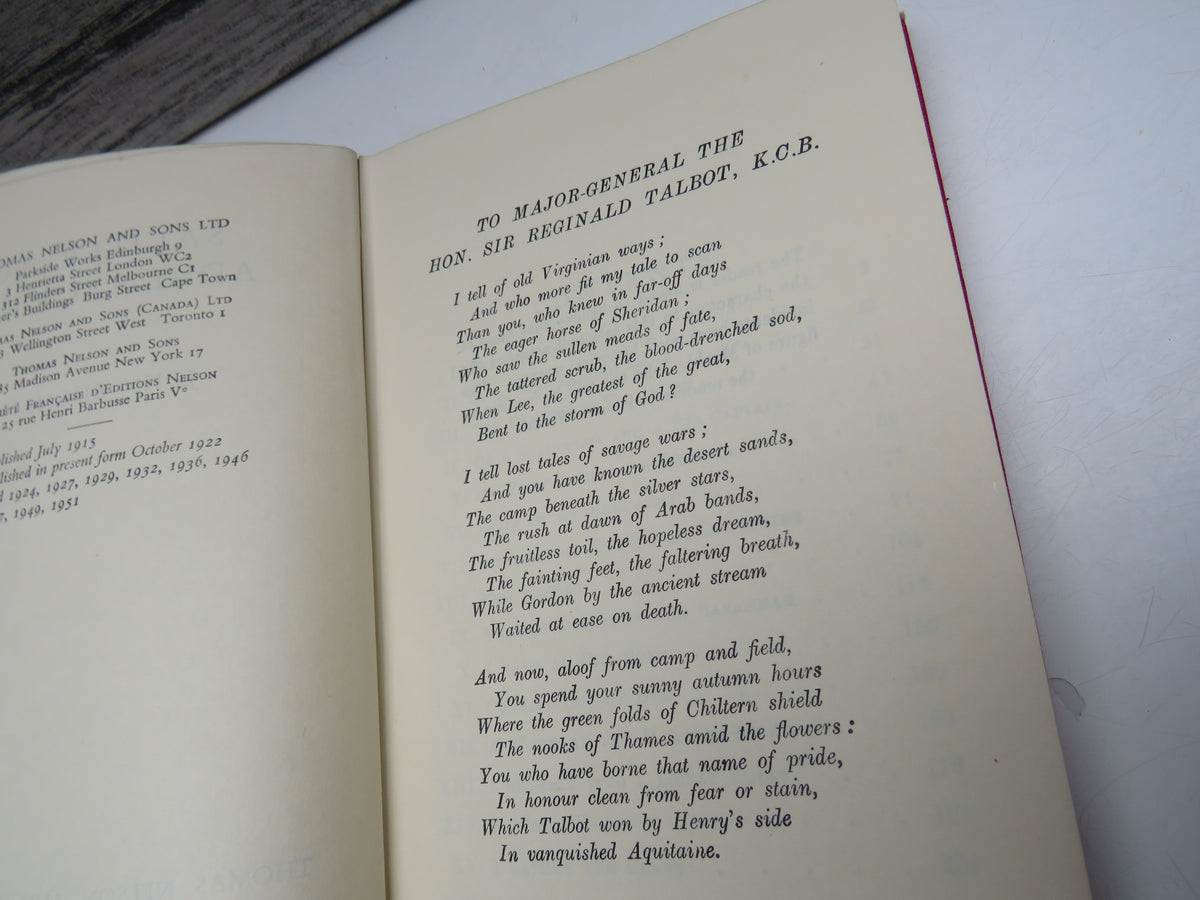 OMAS NELSON AND SONS LTD
Parkside Works Edinburgh 9
3 Henrietta Street London WC2
312 Flinders Street Melbourne C1
er's Buildings Burg Street Cape Town
AS NELSON AND SONS (CANADA) LTD
3 Wellington Street West Toronto 1
THOMAS NELSON AND SONS
85 Madison Avenue New York 17
ÉTÉ FRANÇAISE D'EDITIONS NELSON
25 rue Henri Barbusse Paris Ve
lished July 1915
lished in present form October 1922
d 1924, 1927, 1929, 1932, 1936, 1946
7, 1949, 1951
TO MAJOR-GENERAL THE
HON. SIR REGINALD TALBOT, K.C.B.
I tell of old Virginian ways;
And who more fit my tale to scan
Than you, who knew in far-off days
The eager horse of Sheridan;
Who saw the sullen meads of fate,
The tattered scrub, the blood-drenched sod,
When Lee, the greatest of the great,
Bent to the storm of God?
I tell lost tales of savage wars;
And you have known the desert sands,
The camp beneath the silver stars,
The rush at dawn of Arab bands,
The fruitless toil, the hopeless dream,
The fainting feet, the faltering breath,
While Gordon by the ancient stream
Waited at ease on death.
And now, aloof from camp and field,
You spend your sunny autumn hours
Where the green folds of Chiltern shield
The nooks of Thames amid the flowers:
You who have borne that name of pride,
In honour clean from fear or stain,
Which Talbot won by Henry's side
In vanquished Aquitaine.